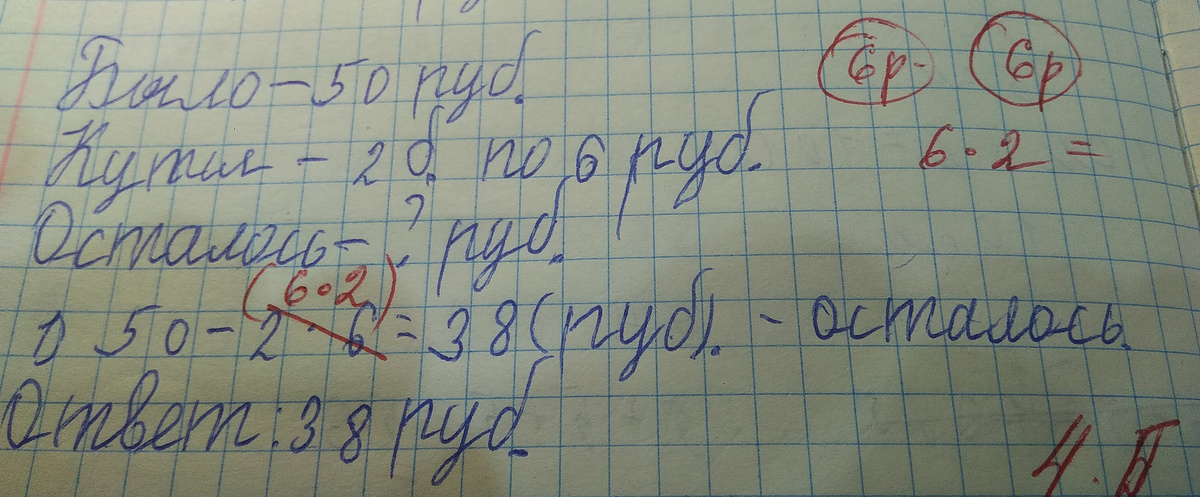 Было – 50 руб.
6р. 6р
Купил – 2 б. по 6 руб.
6 · 2 =
Осталось – ? руб.
(6 · 2)
1) 50 – 2 · 6 = 38 (руб). – осталось.
Ответ: 38 руб.